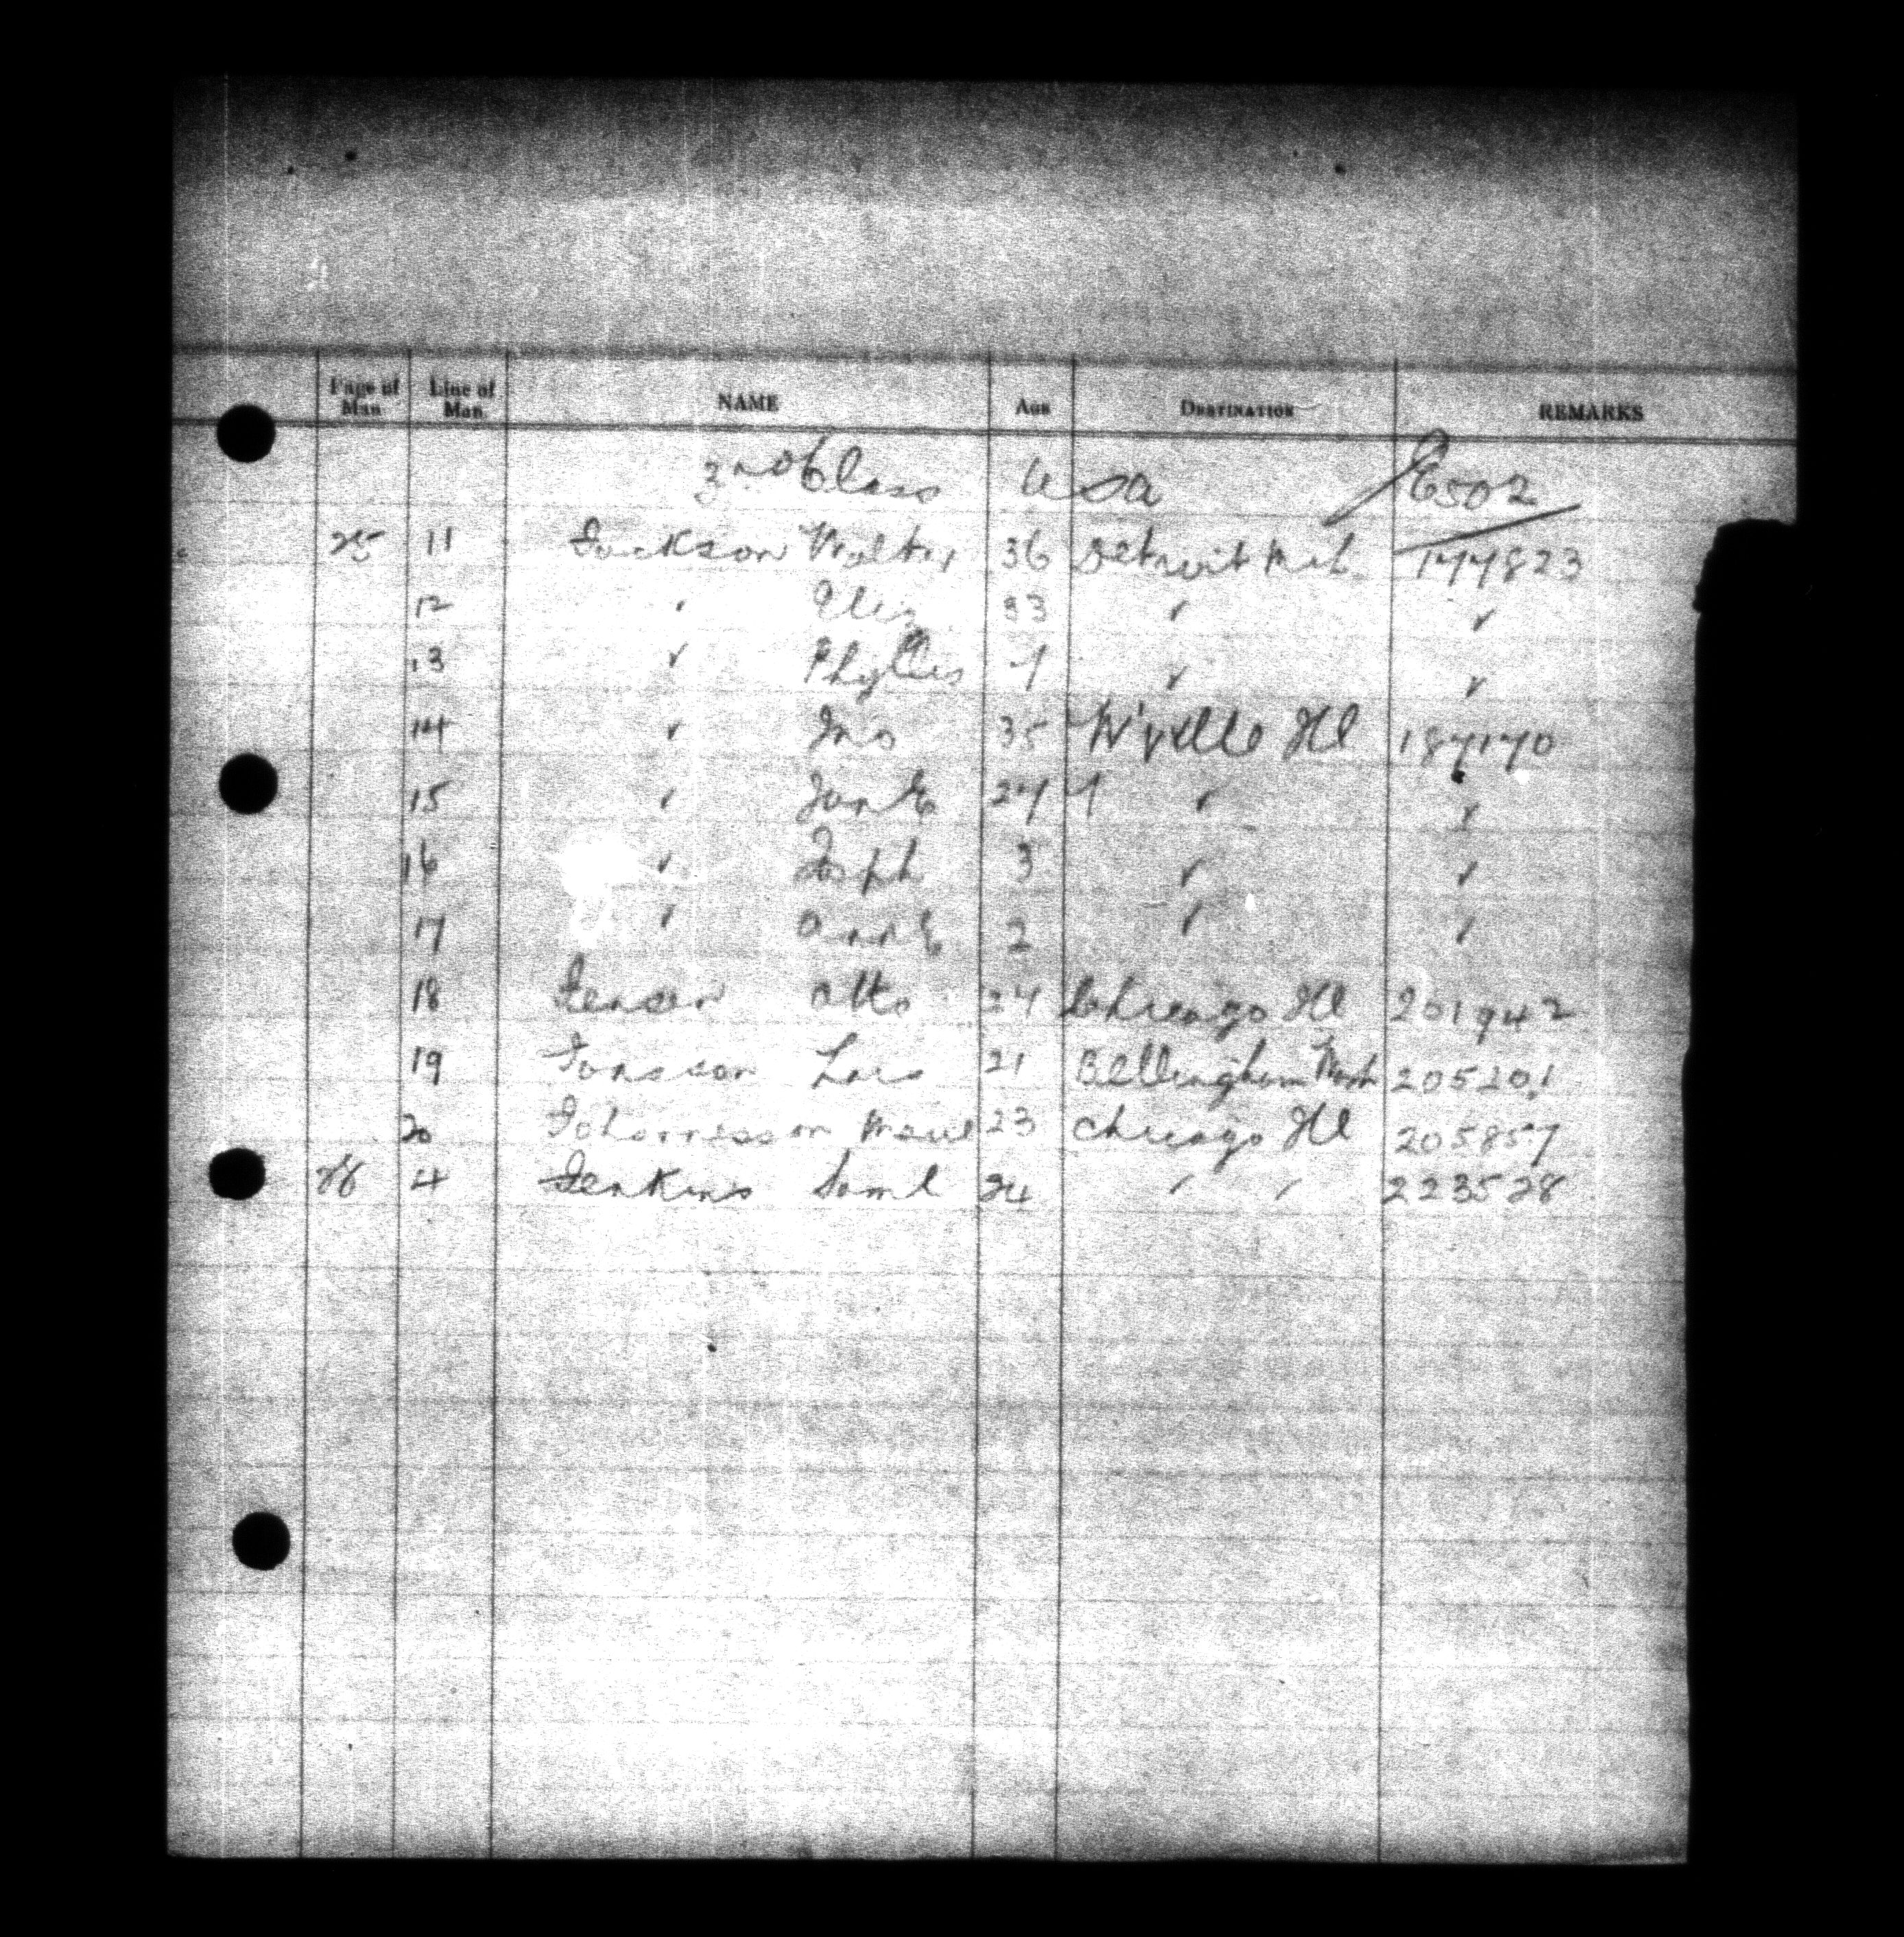 Page of Man Line of Man NAME AGE DESTINATION REMARKS
3rd Class USA E502
25 11 Jackson Walter 36 Detroit Mich 177823
12 " Eliz 33 " "
13 " Phyllis 7 " "
14 " Jno 35 W'ville Ill 187170
15 " Jan E 27 " "
16 " Joseph 3 " "
17 " Ann E 2 " "
18 Jensen Otto 24 Chicago Ill 201942
19 Jonsson Lars 21 Bellingham Wash 205201
20 Johannesson 23 Chicago Ill 205857
26 4 Jenkins Saml 24 " " 223528